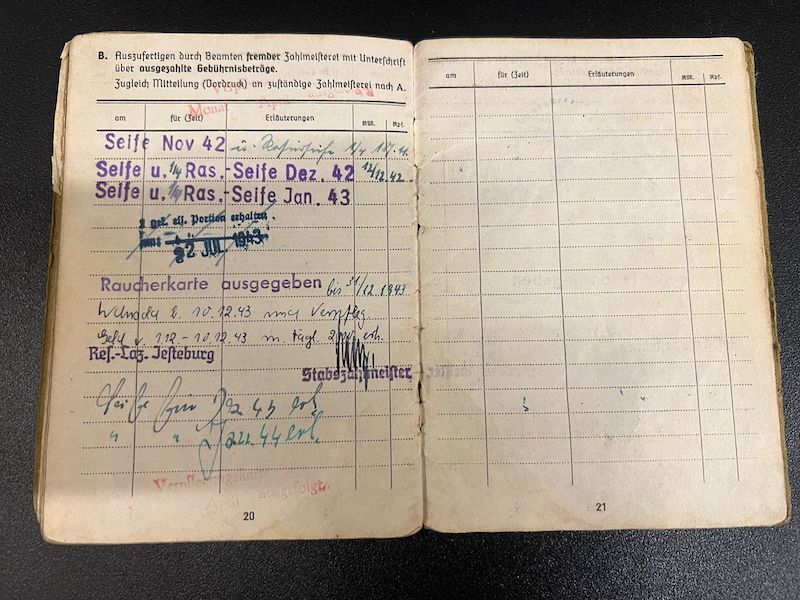 B. Auszufertigen durch Beamten fremder Zahlmeisterei mit Unterschrift
über ausgezahlte Gebührnisbeträge.
Zugleich Mitteilung (Vordruck) an zuständige Zahlmeisterei nach A.
Monat April ausgefolgt
am für (Zeit) Erläuterungen RM. Rpf.
Seife Nov 42 u.
Seife u. 1/4 Ras.-Seife Dez. 42 12/12 42.
Seife u. 1/4 Ras.-Seife Jan. 43
2 gek. eis. Portion erhalten.
2 JUL 1943
Raucherkarte ausgegeben bis 31/12 1943
10.12.43 Verpfleg.
Geld v. 1.12 - 10.12.43 m. tägl. erh.
Res.-Laz. Jesteburg
Stabszahlmeister
Seife für Dez 43 erh.
" " Jan 44 erh.
ausgefolgt.
20
am für (Zeit) Erläuterungen RM. Rpf.
21